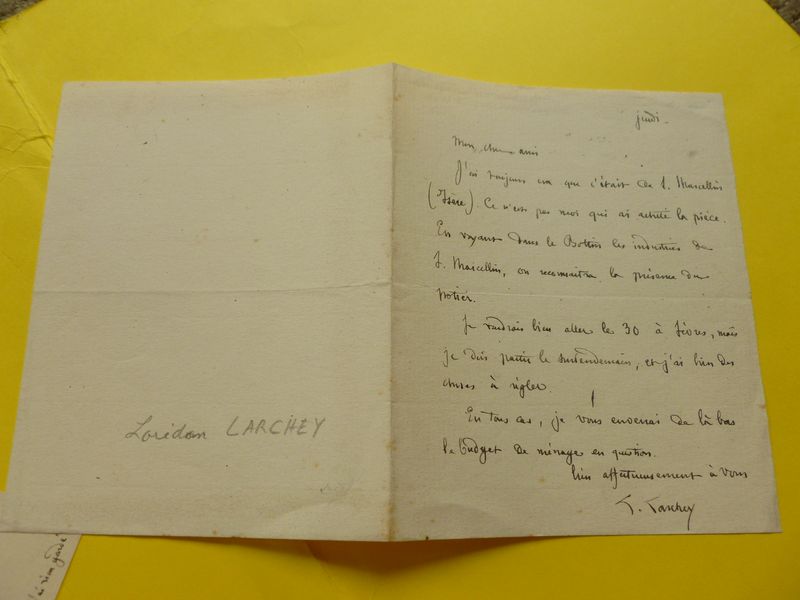 jeudi.
Mon cher ami
J'ai toujours cru que c'était de S. Marcellin
(Isère). Ce n'est pas moi qui ai acheté la pièce.
En voyant dans le Bottin les industries de
S. Marcellin, on reconnaitra la présence du
potier.
Je voudrais bien aller le 30 à Sèvres, mais
je dois partir le surlendemain, et j'ai bien des
choses à régler.
En tous cas, je vous enverrai de là bas
le budget de ménage en question.
bien affectueusement à vous
L. Larchey
Loridan LARCHEY
ai rien gardé